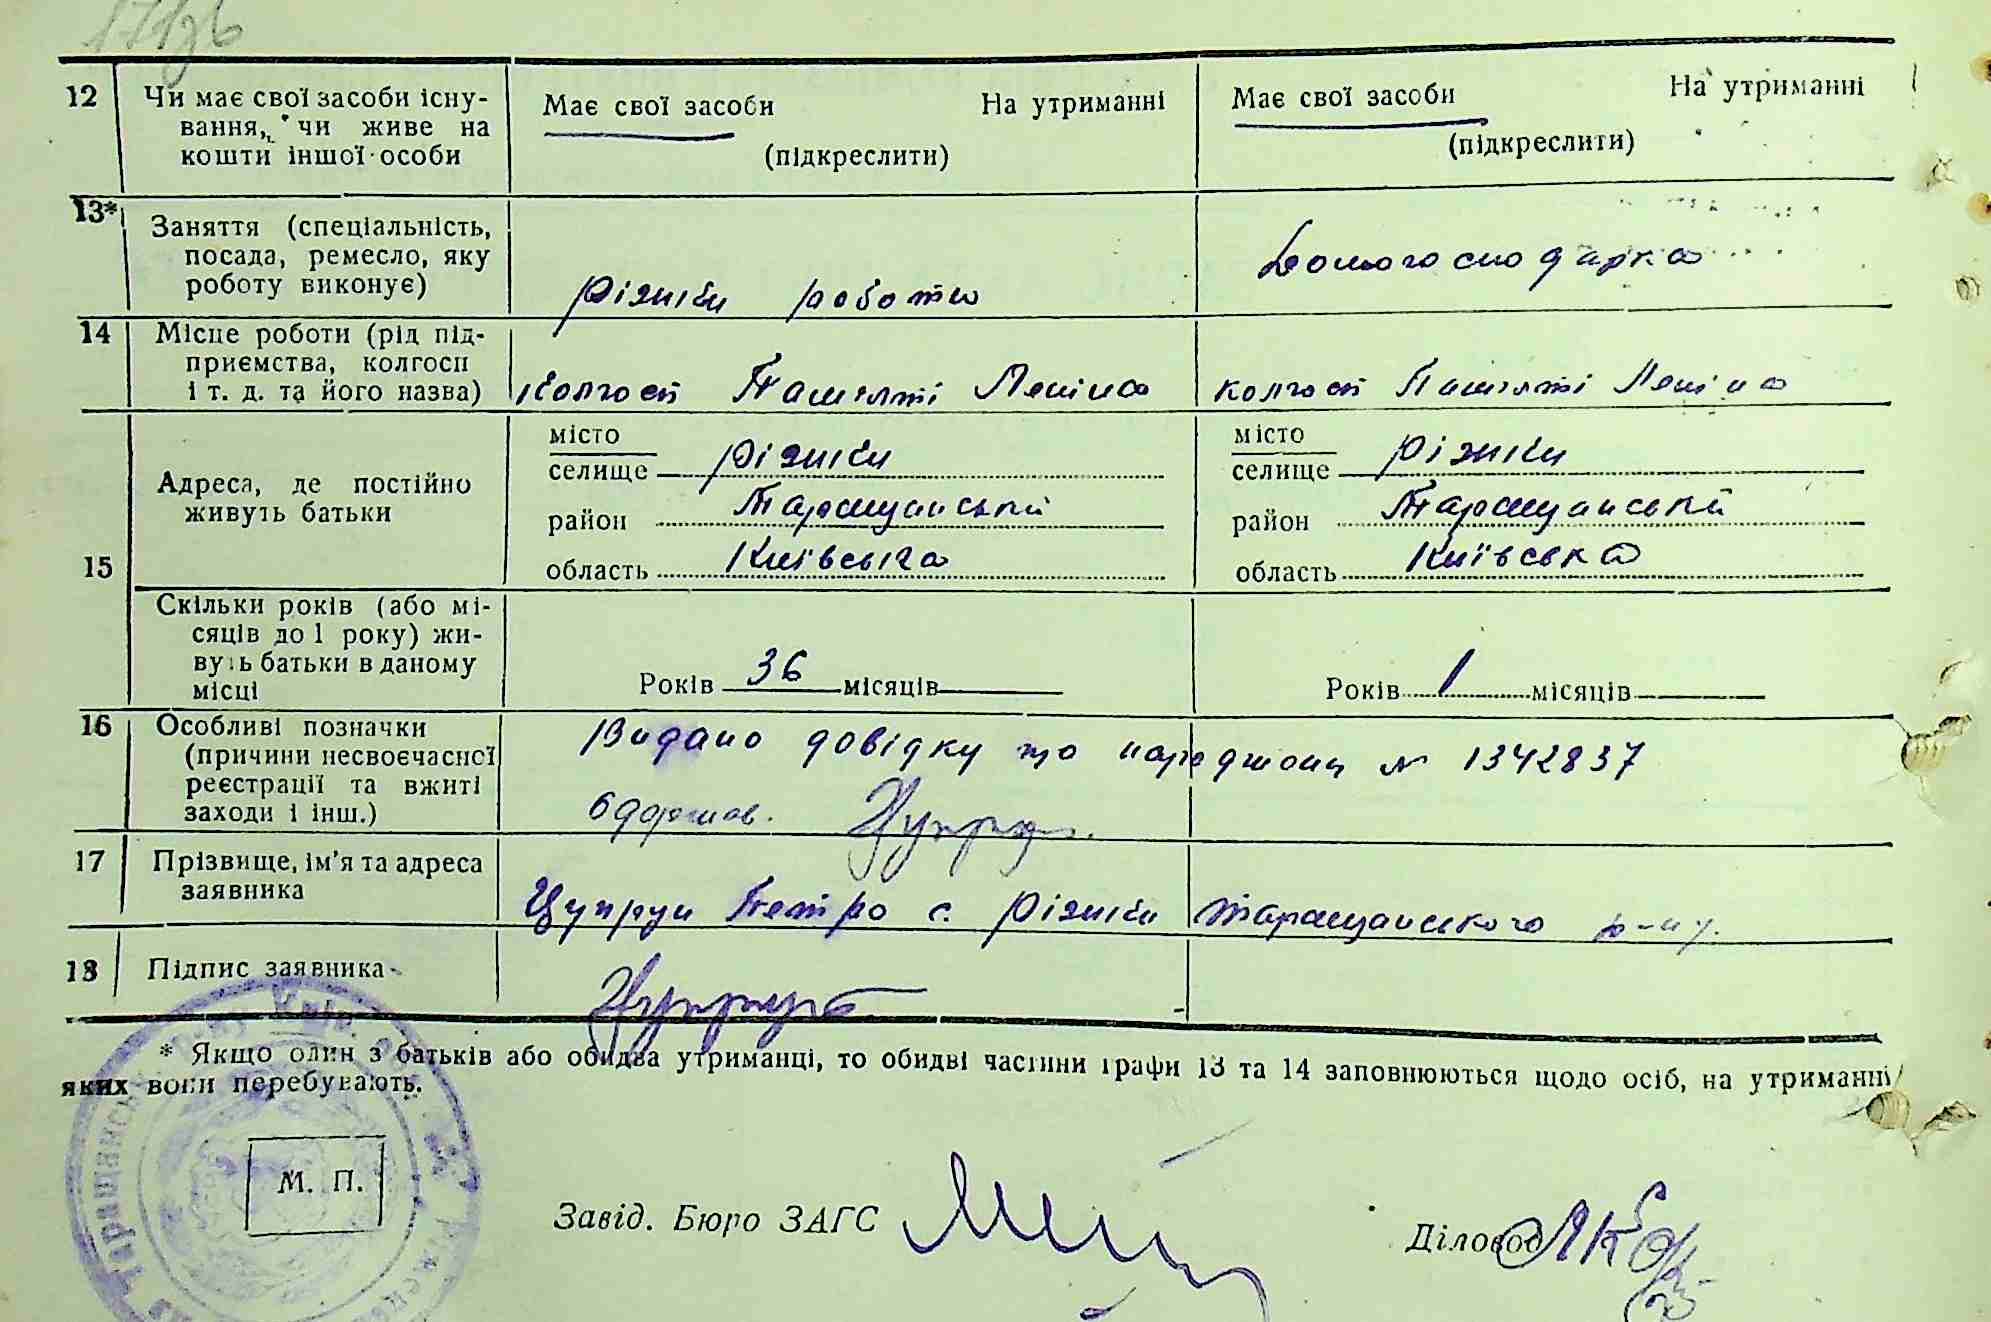 12 Чи має свої засоби існу-
вання, чи живе на
кошти іншої особи
Має свої засоби На утриманні
(підкреслити)
Має свої засоби На утриманні
(підкреслити)
13* Заняття (спеціальність,
посада, ремесло, яку
роботу виконує)
різниби роботи
Домогосподарка
14 Місце роботи (рід під-
приємства, колгосп
і т. д. та його назва)
Колгосп Памяті Леніна
колгосп Памяті Леніна
15 Адреса, де постійно
живуть батьки
місто
селище Різки
район Таращанській
область Київська
місто
селище Різки
район Таращанській
область Київська
Скільки років (або мі-
сяців до 1 року) жи-
вуть батьки в даному
місці
Років 36 місяців
Років 1 місяців
16 Особливі позначки
(причини несвоєчасної
реєстрації та вжиті
заходи і інш.)
Видано довідку про народжени № 1342837
17 Прізвище, ім'я та адреса
заявника
Цупрун Петро с. Різки Таращанського р-ну.
18 Підпис заявника
* Якщо один з батьків або обидва утриманці, то обидві частини графи 13 та 14 заповнюються щодо осіб, на утриманні
яких вони перебувають.
М. П.
Завід. Бюро ЗАГС
Діловод